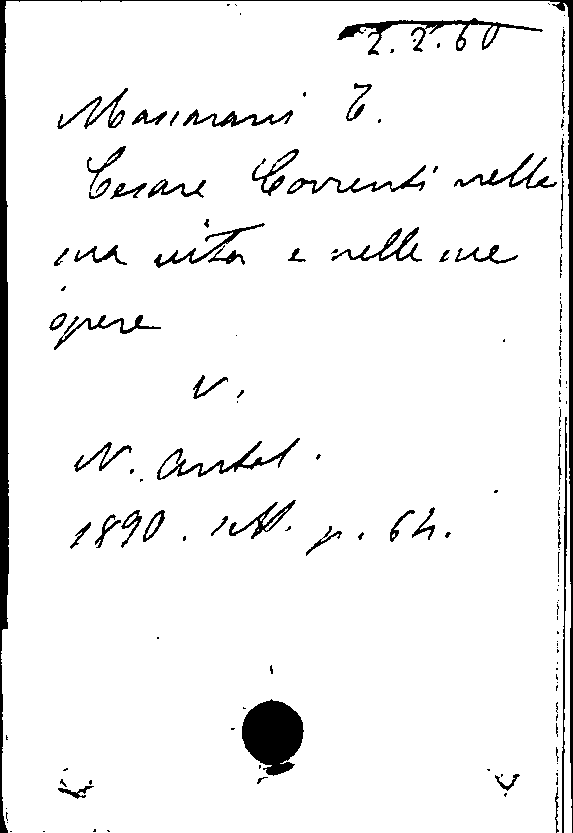 2.2.60
Massarani T.
Cesare Correnti nelle
sua vita e nelle sue
opere
v.
N. Antol.
1890. p. 64.